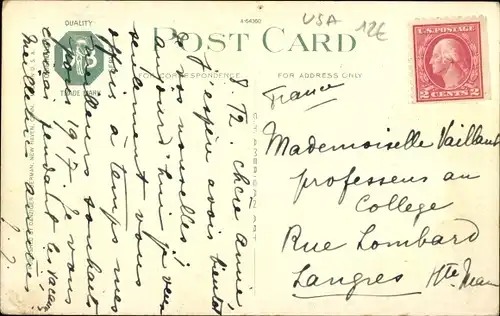 QUALITY
TRADE MARK
A-64360
USA 12€
POST CARD
FOR CORRESPONDENCE
FOR ADDRESS ONLY
U.S. POSTAGE
2 CENTS 2
8. 12. Chère amie,
j'espère avoir bientôt
de vos nouvelles !
aujourd'hui je veux
seulement vous
offrir à temps mes
meilleurs souhaits
pour 1917. Je vous
écrirai pendant les
Meilleures amitiés
France
Mademoiselle Vaillant
professeur au
College
Rue Lombard
Langres Hte Marne